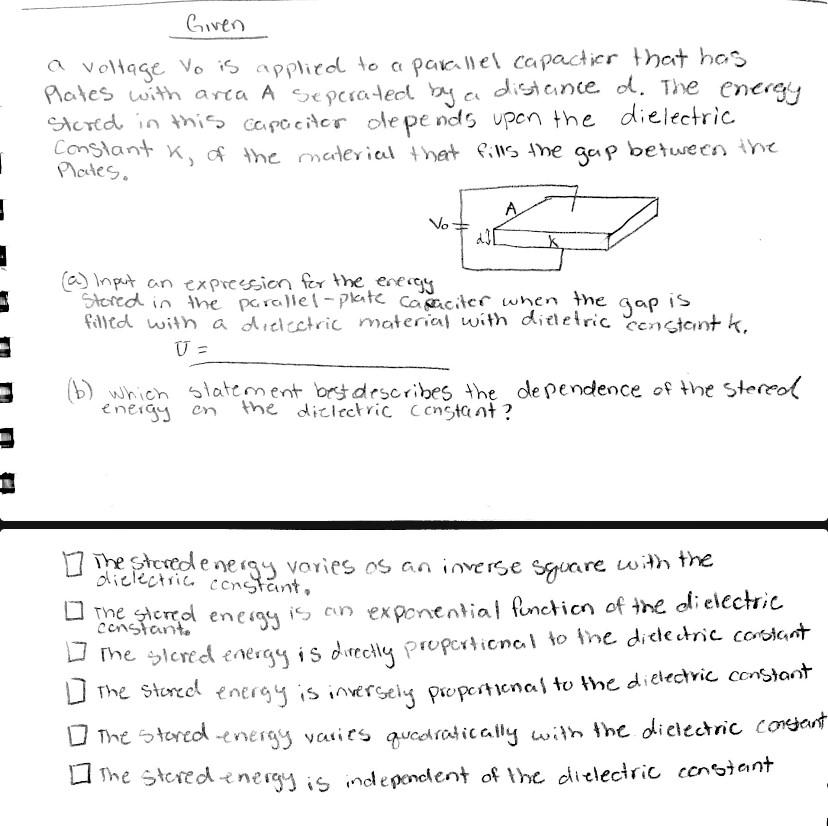 Given
a voltage Vo is applied to a parallel capactior that has
Plates with area A seperated by a distance d. The energy
Stored in this capacitor depends upon the dielectric
Constant K, of the material that fills the gap between the
Plates.
A
Vo
d
K
(a) Input an expression for the energy
Stored in the parallel-plate capaciter when the gap is
filled with a dielectric material with dieletric constant k.
U =
(b) which statement best describes the dependence of the stored
energy on the dielectric constant?
The stored energy varies as an inverse square with the
dielectric constant.
The stored energy is an exponential function of the dielectric
constant.
The stored energy is directly proportional to the dielectric constant
The stored energy is inversely proportional to the dielectric constant
The stored energy varies quadratically with the dielectric constant
The stored energy is independent of the dielectric constant